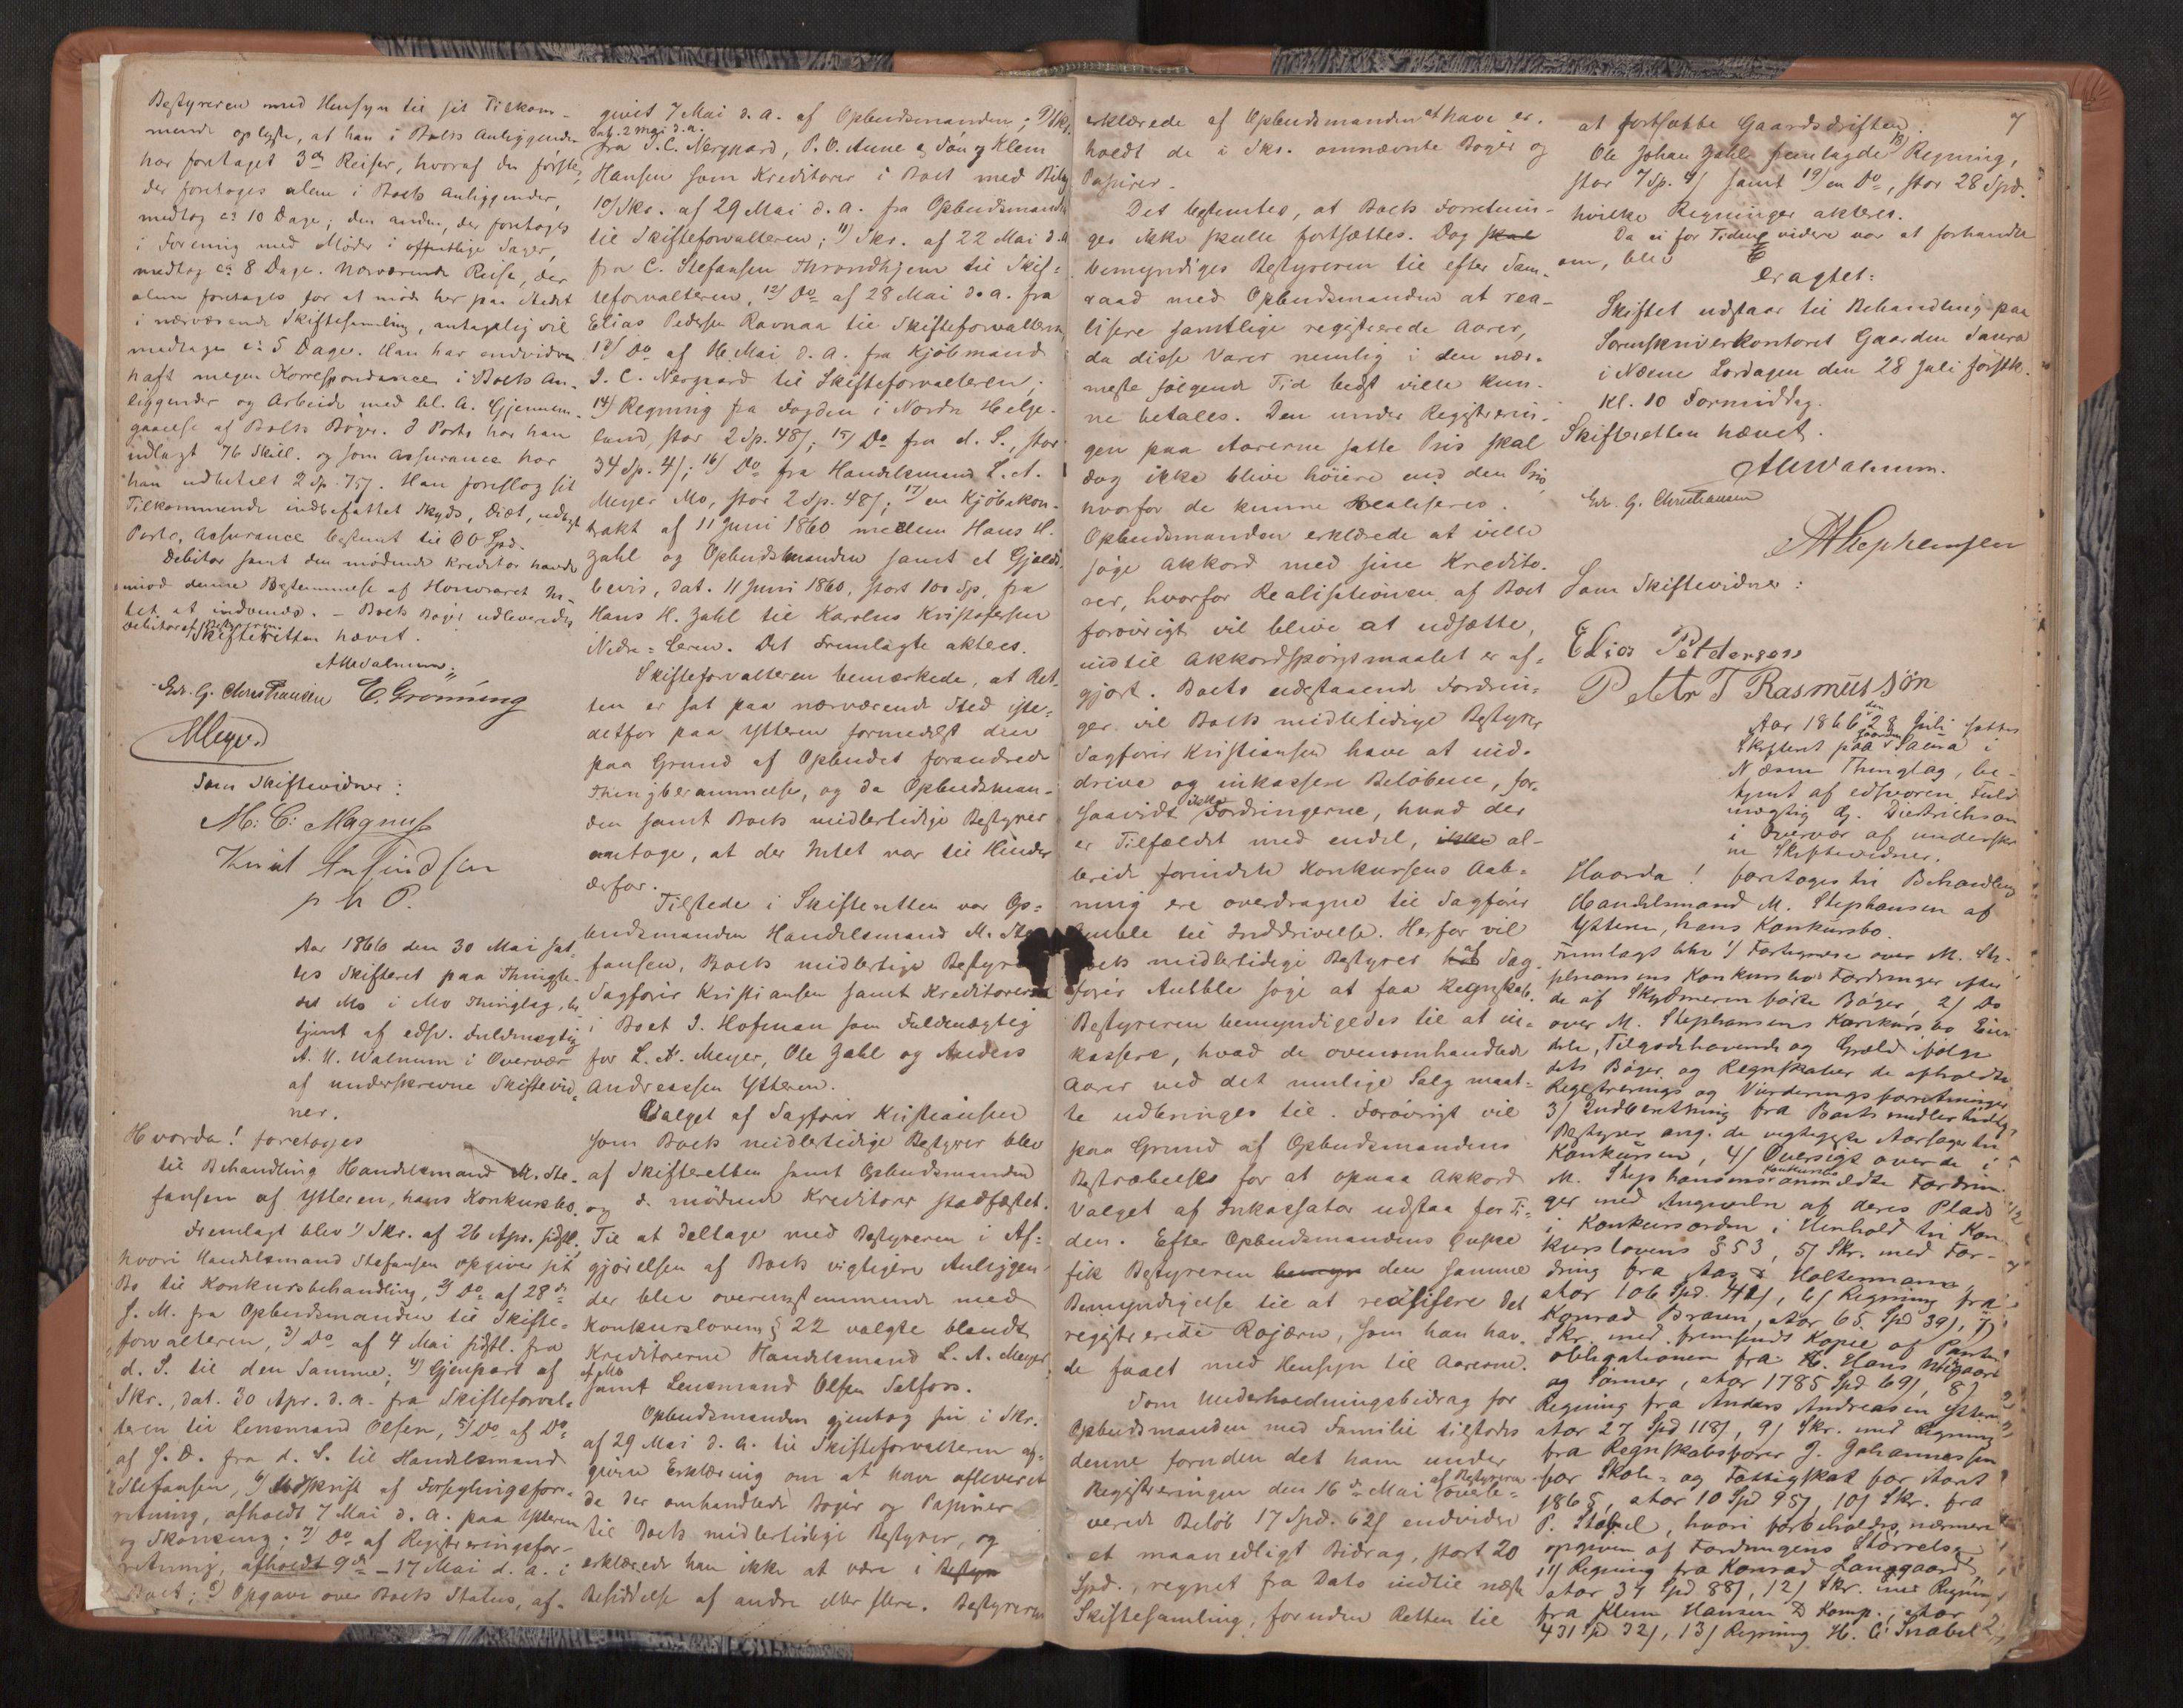 Bestyreren med Hensyn til sit Tilkom-
mende oplyste, at han i Boets Anliggender
har foretaget 3de Reiser, hvoraf den første,
der foretoges alene i Boets Anliggender,
medtog ca 10 Dage; den anden, der foretoges
i Forening med Møder i offentlige Sager,
medtog ca 8 Dage. Nærværende Reise, der
alene foretages for at møde her paa Stedet
i nærværende Skiftesamling, antagelig vil
medtage ca 5 Dage. Han har endvidere
haft megen Korrespondance i Boets An-
liggender og Arbeide med bl. A. Gjennem-
gaaelse af Boets Bøger. I Porto har han
udlagt 76 Skill. og som Assurance har
han udbetalt 2 Sp. 75/. Han foreslog sit
Tilkommende indbefattet Skyds, Diæt, udlagt
Porto, Assurance bestemt til 60 Spd.
Debitor samt den mødende Kreditor havde
mod denne Bestemmelse af Honoraret In-
tet at indvende. - Boets Bøger udleveredes
Skifteretten hævet.
AUWalnum
Edv. G. Christiansen E. Grønning
Meyer
Som Skiftevidner:
M: C: Magnus
Knut
p h P.
Aar 1866 den 30 Mai sat-
tes Skifteret paa Thingste-
det Mo i Mo Thinglag, be-
tjent af edsv. Fuldmægtig
A. U. Walnum i Overvær
af underskrevne Skiftevid-
ner.
Hvorda! foretoges
til Behandling Handelsmand M. Ste-
fansen af Ytteren, hans Konkursbo.
Fremlagt blev 1/ Skr. af 26 Apr. sidstl.
hvori Handelsmand Stefansen opgiver sit
Bo til Konkursbehandling, 2/ Do af 28de
s. M. fra Opbudsmanden til Skifte-
forvalteren, 3/ Do af 4 Mai sidstl. fra
d. S. til den Samme, 4/ Gjenpart af
Skr., dat. 30 Apr. d. a. fra Skifteforval-
teren til Lensmand Olsen, 5/ Do af Do
af s. D. fra d. S. til Handelsmand
Stefansen, 6/ Udskrift af Forseglingsfor-
retning, afholdt 7 Mai d. A. paa Ytteren
og Skonseng; 7/ Do af Registreringsfor-
retning, afholdt 9de - 17 Mai d. a. i
Boet; 8/ Opgave over Boets Status, af-
givet 7 Mai d. A. af Opbudsmanden; 9/ Skr.
dat. 2 Mai d. a.
fra I. C. Nergaard, P. O. Aune og Søn og Klem
Hansen som Kreditorer i Boet med Bilag
10/ Skr. af 29 Mai d. A. fra Opbudsmanden
til Skifteforvalteren; 11/ Skr. af 22 Mai d. A
fra C. Stefansen Throndhjem til Skif-
teforvalteren, 12/ Do af 28 Mai d. a. fra
Elias Pedersen Ravnaa til Skifteforvalteren
13/ Do af 16 Mai d. a. fra Kjøbmand
I. C. Nergaard til Skifteforvalteren;
14/ Regning fra Fogden i Nordre Helge-
land, stor 2 Sp. 48/; 15/ Do fra d. S., stor
34 Sp. 4/; 16/ Do fra Handelsmand L. A.
Meyer Mo, stor 2 Sp. 48/; 17/ en Kjøbekon-
trakt af 11 Juni 1860 mellem Hans H.
Zahl og Opbudsmanden samt et Gjælds-
bevis, dat. 11 Juni 1860, stort 100 Sp. fra
Hans H. Zahl til Karolus Kristofersen
Nedre-Leren. Det Fremlagte akteres.
Skifteforvalteren bemærkede, at Ret-
ten er sat paa nærværende Sted iste-
detfor paa Ytteren formedelst den
paa Grund af Opbudet forandrede
Thingberammelse, og da Opbudsman-
den samt Boets midlertidige Bestyrer
antoge, at der Intet var til Hinder
derfor.
Tilstede i Skifteretten var Op-
budsmanden Handelsmand M. Ste
fansen, Boets midlertige Bestyrer
Sagfører Kristiansen samt Kreditorerne
i Boet I. Hofman som Fuldmægtig
for L. A. Meyer, Ole Zahl og Anders
Andreassen Ytteren.
Valget af Sagfører Kristiansen
som Boets midlertidige Bestyrer blev
af Skifteretten samt Opbudsmanden
og d. mødende Kreditorer stadfæstet.
Til at deltage med Bestyreren i Af-
gjørelsen af Boets vigtigere Anliggen-
der blev overensstemmende med
Konkurslovens § 22 valgte blandt
Kreditorerne Handelsmand L. A. Meyer
af Mo
samt Lensmand Olsen Selfors.
Opbudsmanden gjentog sin i Skr.
af 29 Mai d. A. til Skifteforvalteren af-
givne Erklæring om at have afleveret
de der omhandlede Bøger og Papirer
til Boets midlertidige Bestyrer, og
erklærede han ikke at være i Bestyr
Besiddelse af andre eller flere. Bestyreren
erklærede af Opbudsmanden at have er-
holdt de i Skr. omnævnte Bøger og
Papirer.
Det bestemtes, at Boets Forretnin-
ger ikke skulle fortsættes. Dog skal
bemyndiges Bestyreren til efter Sam-
raad med Opbudsmanden at rea-
lisere samtlige registrerede Aarer,
da disse Varer nemlig i den nær-
meste følgende Tid bedst ville kun-
ne betales. Den under Registrerin-
gen paa Aarerne satte Pris skal
dog ikke blive høiere end den Pris,
hvorfor de kunne realiseres.
Opbudsmanden erklærede at ville
søge Akkord med sine Kredito-
rer, hvorfor Realisationen af Boet
forøvrigt vil blive at udsætte,
indtil Akkordspørgsmaalet er af-
gjort. Boets udestaaende Fordrin-
ger vil Boets midletidige Bestyrer
Sagfører Kristiansen have at ind-
drive og inkassere Beløbene, for-
saavidt ikke Fordringerne, hvad der
er Tilfældet med endel, ikke al-
lerede forinden Konkursens Aab-
ning ere overdragne til Sagfører
Aubble til Inddrivelse. Herfor vil
Boets midlertidige Bestyrer hos af Sag-
fører Aubble søge at faa Regnskab.
Bestyreren bemyndigedes til at in-
kassere, hvad de ovenomhandlede
Aarer ved det mulige Salg maat-
te udbringes til. Forøvrigt vil
paa Grund af Opbudsmandens
Bestræbelser for at opnaa Akkord
Valget af Inkassator udstaa for Ti-
den. Efter Opbudsmandens Ønske
fik Bestyreren bemyn den samme
Bemyndigelse til at realisere det
registrerede Rojærn, som han hav-
de faaet med Hensyn til Aarerne.
Som Underholdningsbidrag for
Opbudsmanden med Familie tilstodes
denne foruden det ham under
Registreringen den 16de Mai af Bestyreren overle-
verede Beløb 17 Spd. 62/ endvidere
et maanedligt Bidrag, stort 20
Spd., regnet fra Dato indtil næste
Skiftesamling, foruden Retten til
7
at fortsætte Gaardsdriften.
Ole Johan Zahl fremlagde 18/ Regning,
stor 7 Sp. 4/ samt 19/ en Do, stor 28 Spd.
hvilke Regninger akteres.
Da ei for Tiden videre var at forhandle
om, blev
Eragtet:
Skiftet udstaar til Behandling paa
Sorenskriverkontoret Gaarden Saura
i Næsne Lørdagen den 28 Juli førstk.
Kl. 10 Formiddag.
Skifteretten hævet.
AUWalnum.
Edv. G. Christiansen
MStephensen
Som Skiftevidner:
Elias Petdersen
Petter T Rasmussøn
Aar 1866 den 28 Juli sattes
Skifteret paa Gaarden Saura i
Næsne Thinglag, be-
tjent af edsvoren Fuld
mægtig G. Diedrichson
i Overvær af underskrev
ne Skiftevidner.
Hvorda! foretages til Behandling
Handelsmand M. Stephansen af
Ytteren, hans Konkursbo.
Fremlagt blev 1/ Fortegnelse over M. Ste-
phansens Konkursbos Fordringer efter
de af Skyldneren førte Bøger, 2/ Do
over M. Stephansens Konkursbo Eien
dele, Tilgodehavende og Gjæld ifølge
dets Bøger og Regnskaber de afholdte
Registrerings og Vurderingsforretninger
3/ Indberetning fra Boets midlertidige
Bestyrer ang. de vigtigste Aarsager til
Konkursen, 4/ Oversigt over de i
M. Stephansens Konkursbo anmeldte Fordrin-
ger med Angivelse af deres Plads
i Konkursorden i Henhold til Kon-
kurslovens § 53, 5/ Skr. med For-
dring fra Aas & Holtermann
stor 106 Spd. 41/, 6/ Regning fra
Konrad Braun, stor 65 Spd 39/, 7/
Skr. med fremsendt Kopie af Pante-
obligationen fra H. Hans
og Sønner, stor 1785 Spd 69/, 8/
Regning fra Anders Andreasen Ytteren
stor 27 Spd 118/, 9/ Skr. med Regning
fra Regnskabsfører J. Johannessen
for Skole- og Fattigskat for Aaret
1865, stor 10 Spd 95/, 10/ Skr. fra
P. Stabel, hvori forbeholdes nærmere
opgiven af Fordringens Størrelse
11/ Regning fra Konrad Langgaard,
stor 34 Spd 88/, 12/ Skr. med Regning
fra Klem Hansen & Komp., stor
431 Spd 32/, 13/ Regning H. C. Snabel